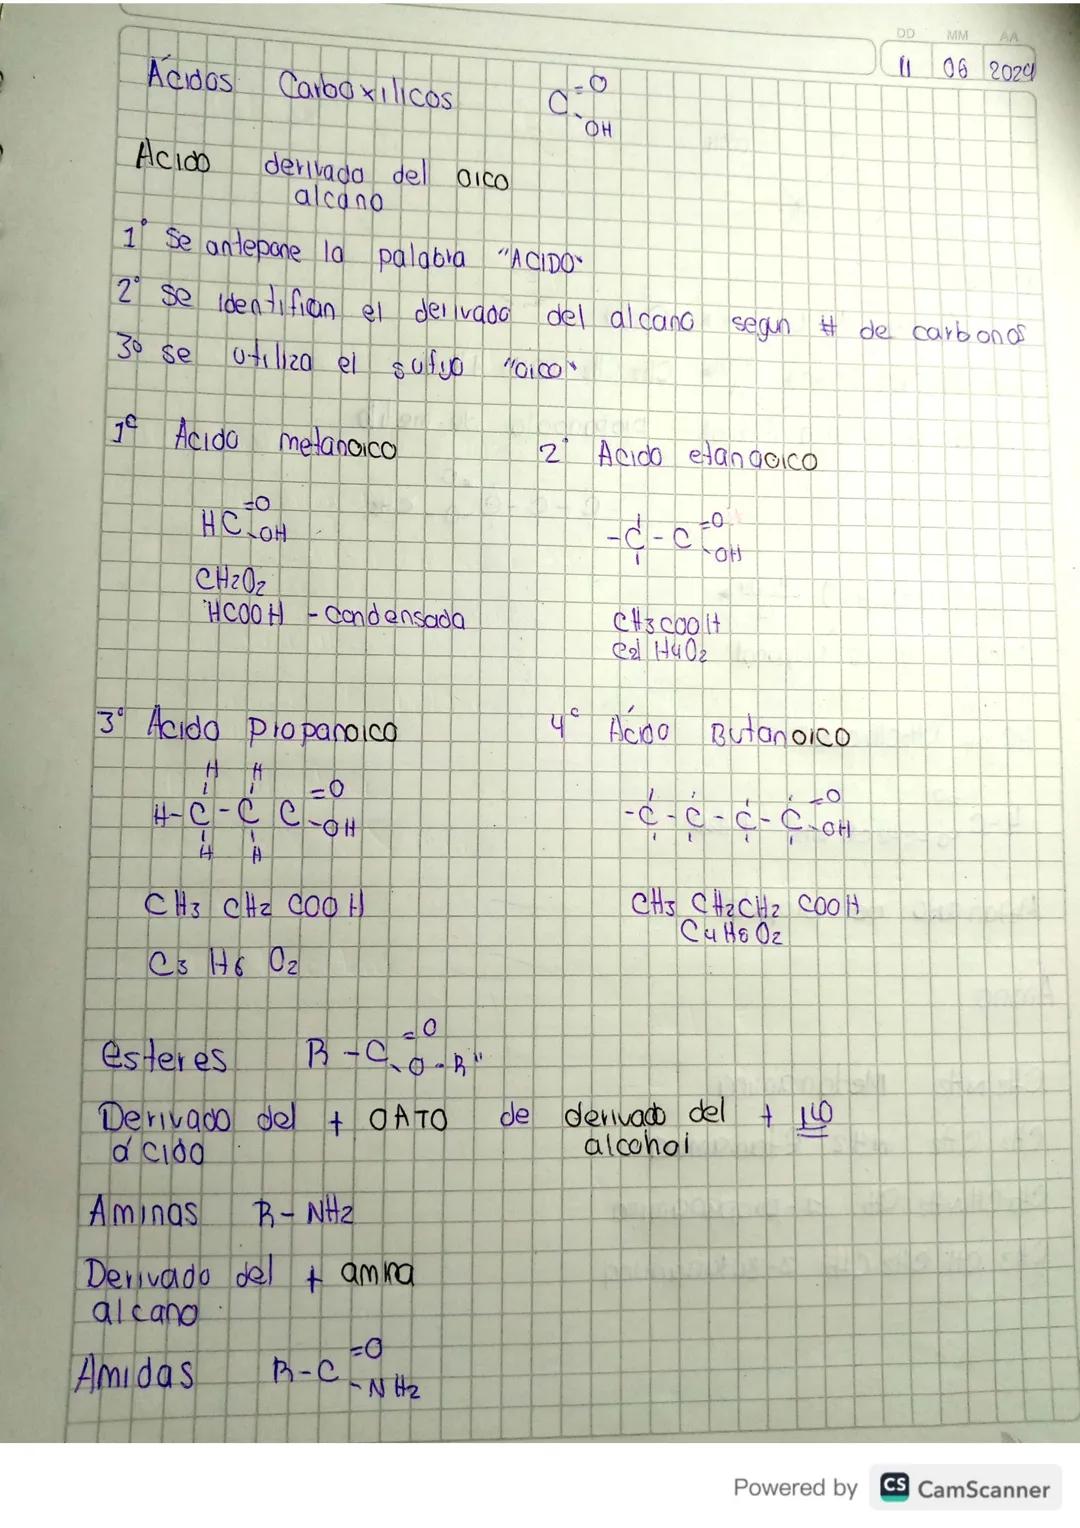 DD MM AA
11 06 2024
Ácidos Carboxilicos C =O -OH
Acido derivado del alcano oico
1° Se antepone la palabra "ACIDO"
2° Se identifican el derivado del alcano segun # de carbonos
3° se utiliza el sufijo "oico"
1° Acido metanoico
HC =O -OH
CH2O2
HCOOH - Condensada
2° Acido etanooico
-C-C =O -OH
CH3COOH
C2H4O2
3° Acido Propanoico
H H
H-C-C C =O -OH
H H
CH3 CH2 COOH
C3 H6 O2
4° Ácido Butanoico
-C-C-C-C =O -OH
CH3 CH2CH2 COOH
C4H8O2
esteres R-C =O -O-R"
Derivado del ácido + OATO de derivado del alcohol + ilo
Aminas R-NH2
Derivado del alcano + amina
Amidas R-C =O -NH2
Powered by CS CamScanner